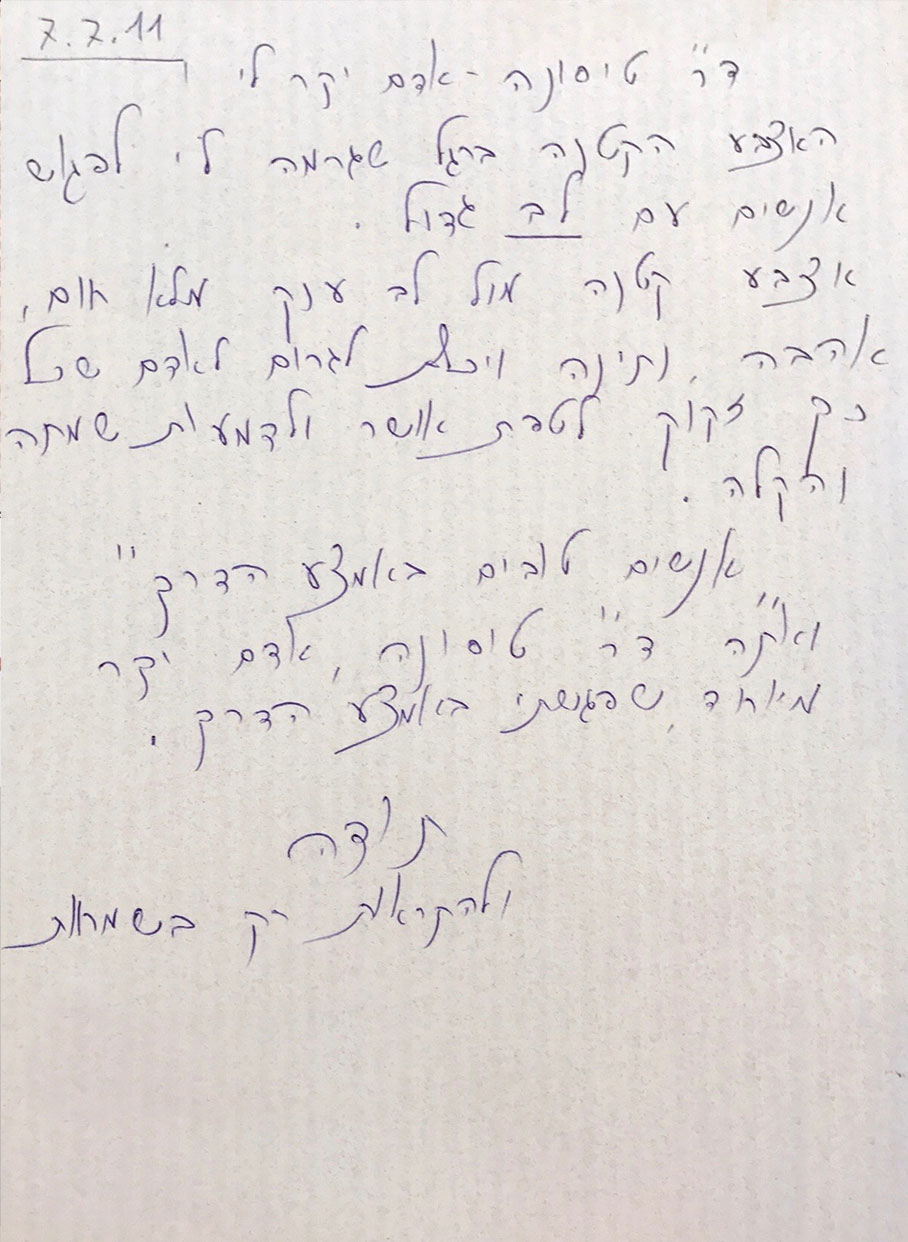 7.7.11
ד"ר טיסונה - אדם יקר לי,
האצבע הקטנה ברגל שגרמה לי לפגוש
אנשים עם לב גדול.
אצבע קטנה מול לב ענק מלא חום,
אהבה, נתינה ויכולת לגרום לאדם שכל
כך זקוק לטפת אושר ולדמעות שמחה
והקלה.
אנשים טובים באמצע הדרך"
ואתה ד"ר טיסונה, אדם יקר
מיוחד, שפגשתי באמצע הדרך.
תודה
ולהקראות רק בשמחות